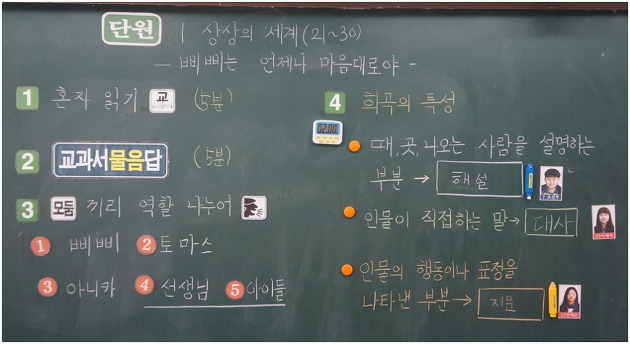 단원 1 상상의 세계 (21~30)
- 삐삐는 언제나 마음대로야 -
1 혼자 읽기 교 (5분)
2 교과서물음답 (5분)
3 모둠 끼리 역할 나누어
1 삐삐 2 토마스
3 아니카 4 선생님 5 아이들
4 희곡의 특성
02:00
때, 곳, 나오는 사람을 설명하는
부분 → 해설
인물이 직접하는 말 → 대사
인물의 행동이나 표정을
나타낸 부분 → 지문